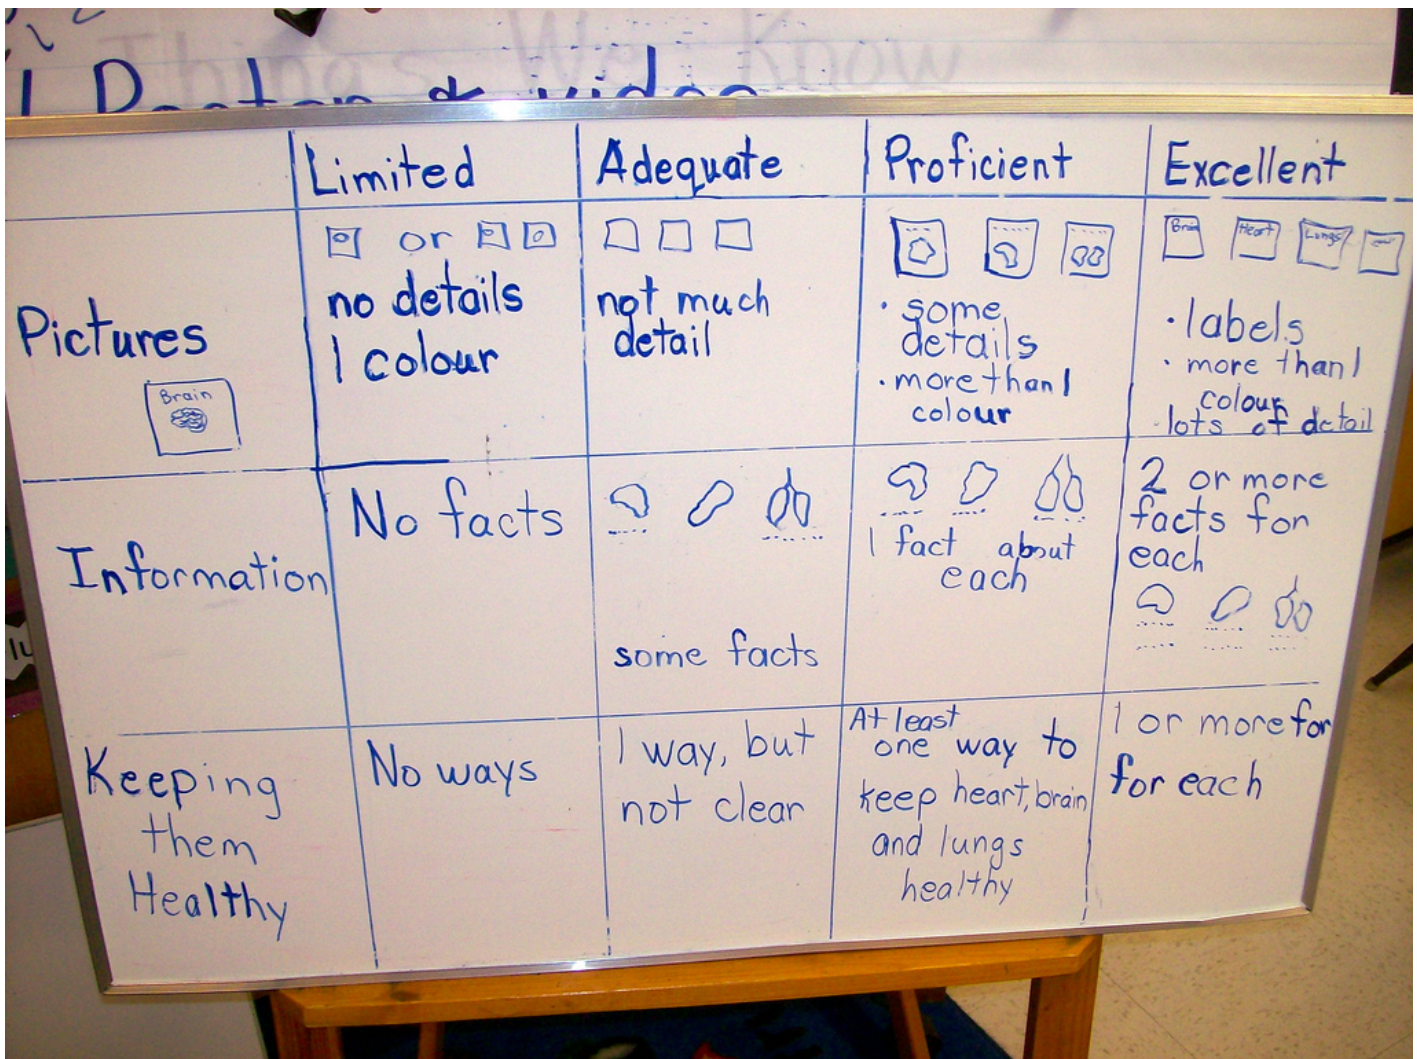 Things We Know
Doctor & video
Limited
Adequate
Proficient
Excellent
Pictures
Brain
or
no details
1 colour
not much
detail
· some
details
· more than 1
colour
Brain
Heart
Lungs
· labels
· more than 1
colour
· lots of detail
Information
No facts
some facts
1 fact about
each
2 or more
facts for
each
Keeping
them
Healthy
No ways
1 way, but
not clear
At least
one way to
keep heart, brain
and lungs
healthy
1 or more for
for each